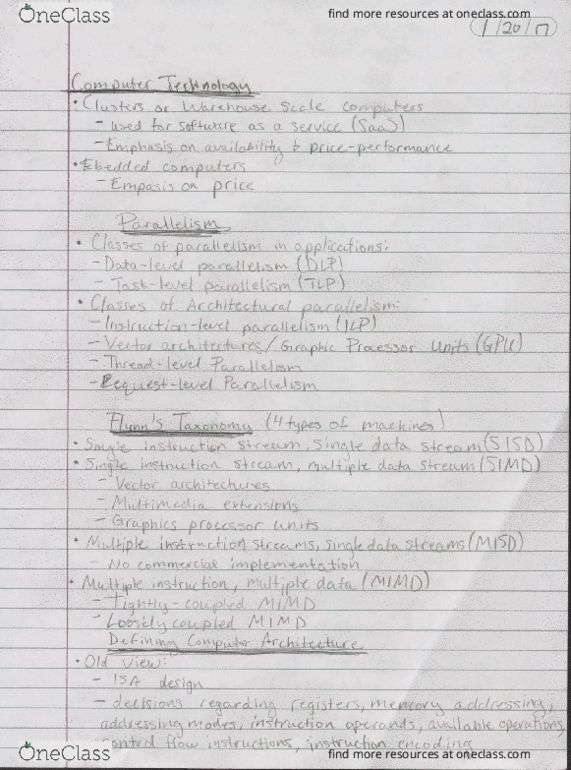 OneClass
find more resources at oneclass.com
1/20/17
Computer Technology
• Clusters or Warehouse Scale computers
- used for software as a service (SaaS)
- Emphasis on availability & price-performance
• Ebedded computers
- Empasis on price
Parallelism
• Classes of parallelism in applications:
- Data-level parallelism (DLP)
- Task-level parallelism (TLP)
• Classes of Architectural parallelism:
- Instruction-level parallelism (ILP)
- Vector architectures/Graphic Processor Units (GPU)
- Thread-level Parallelism
- Request-level Parallelism
Flynn's Taxonomy (4 types of machines)
• Single instruction stream, single data stream (SISD)
• Single instruction stream, multiple data stream (SIMD)
- Vector architectures
- Multimedia extensions
- Graphics processor units
• Multiple instruction streams, single data streams (MISD)
- No commercial implementation
• Multiple instruction, multiple data (MIMD)
- Tightly-coupled MIMD
- Loosely coupled MIMD
Defining Computer Architecture
• Old View:
- ISA design
- decisions regarding registers, memory addressing,
addressing modes, instruction operands, available operations,
control flow instructions, instruction encoding
OneClass
find more resources at oneclass.com